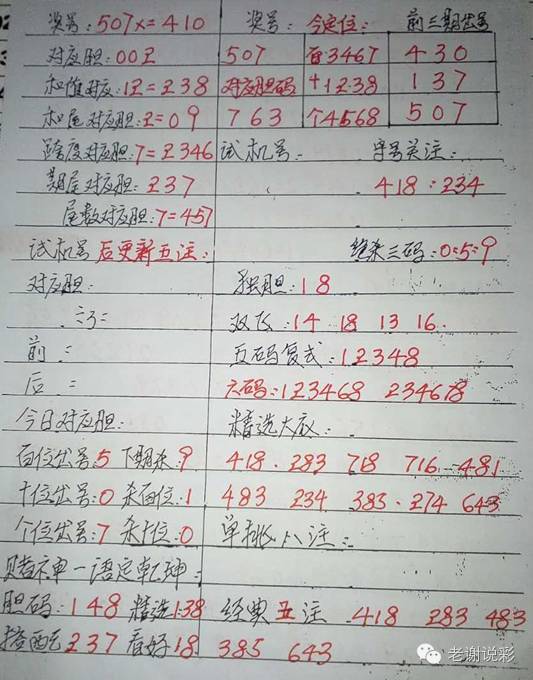 奖号:507X=410 奖号: 今定位: 前三期出号
对应胆:00Z 507 百3467 430
和值对应:1Z=Z38 对应胆码 十1238 137
和尾对应胆:Z=09 763 个4568 507
跨度对应胆:7=Z346 试机号: 字号关注:
期尾对应胆:Z37 418:234
尾数对应胆:7=457
试机号后更新五注: 绝杀三码:0:5:9
对应胆: 独胆:18
双飞:14 18 13 16.
前: 五码复式:12348
后: 六码:123468 234678
今日对应胆: 精选大底:
百位出号:5 下期杀:9 418. 283 718 716 481
十位出号:0 杀百位:1 483 234 383. 274 643
个位出号:7 杀十位:0 单挑八注:
赌神一语定乾坤:
胆码:148 精选138 经典五注 418 283 483
搭配237 看好18 385 643
老谢说彩